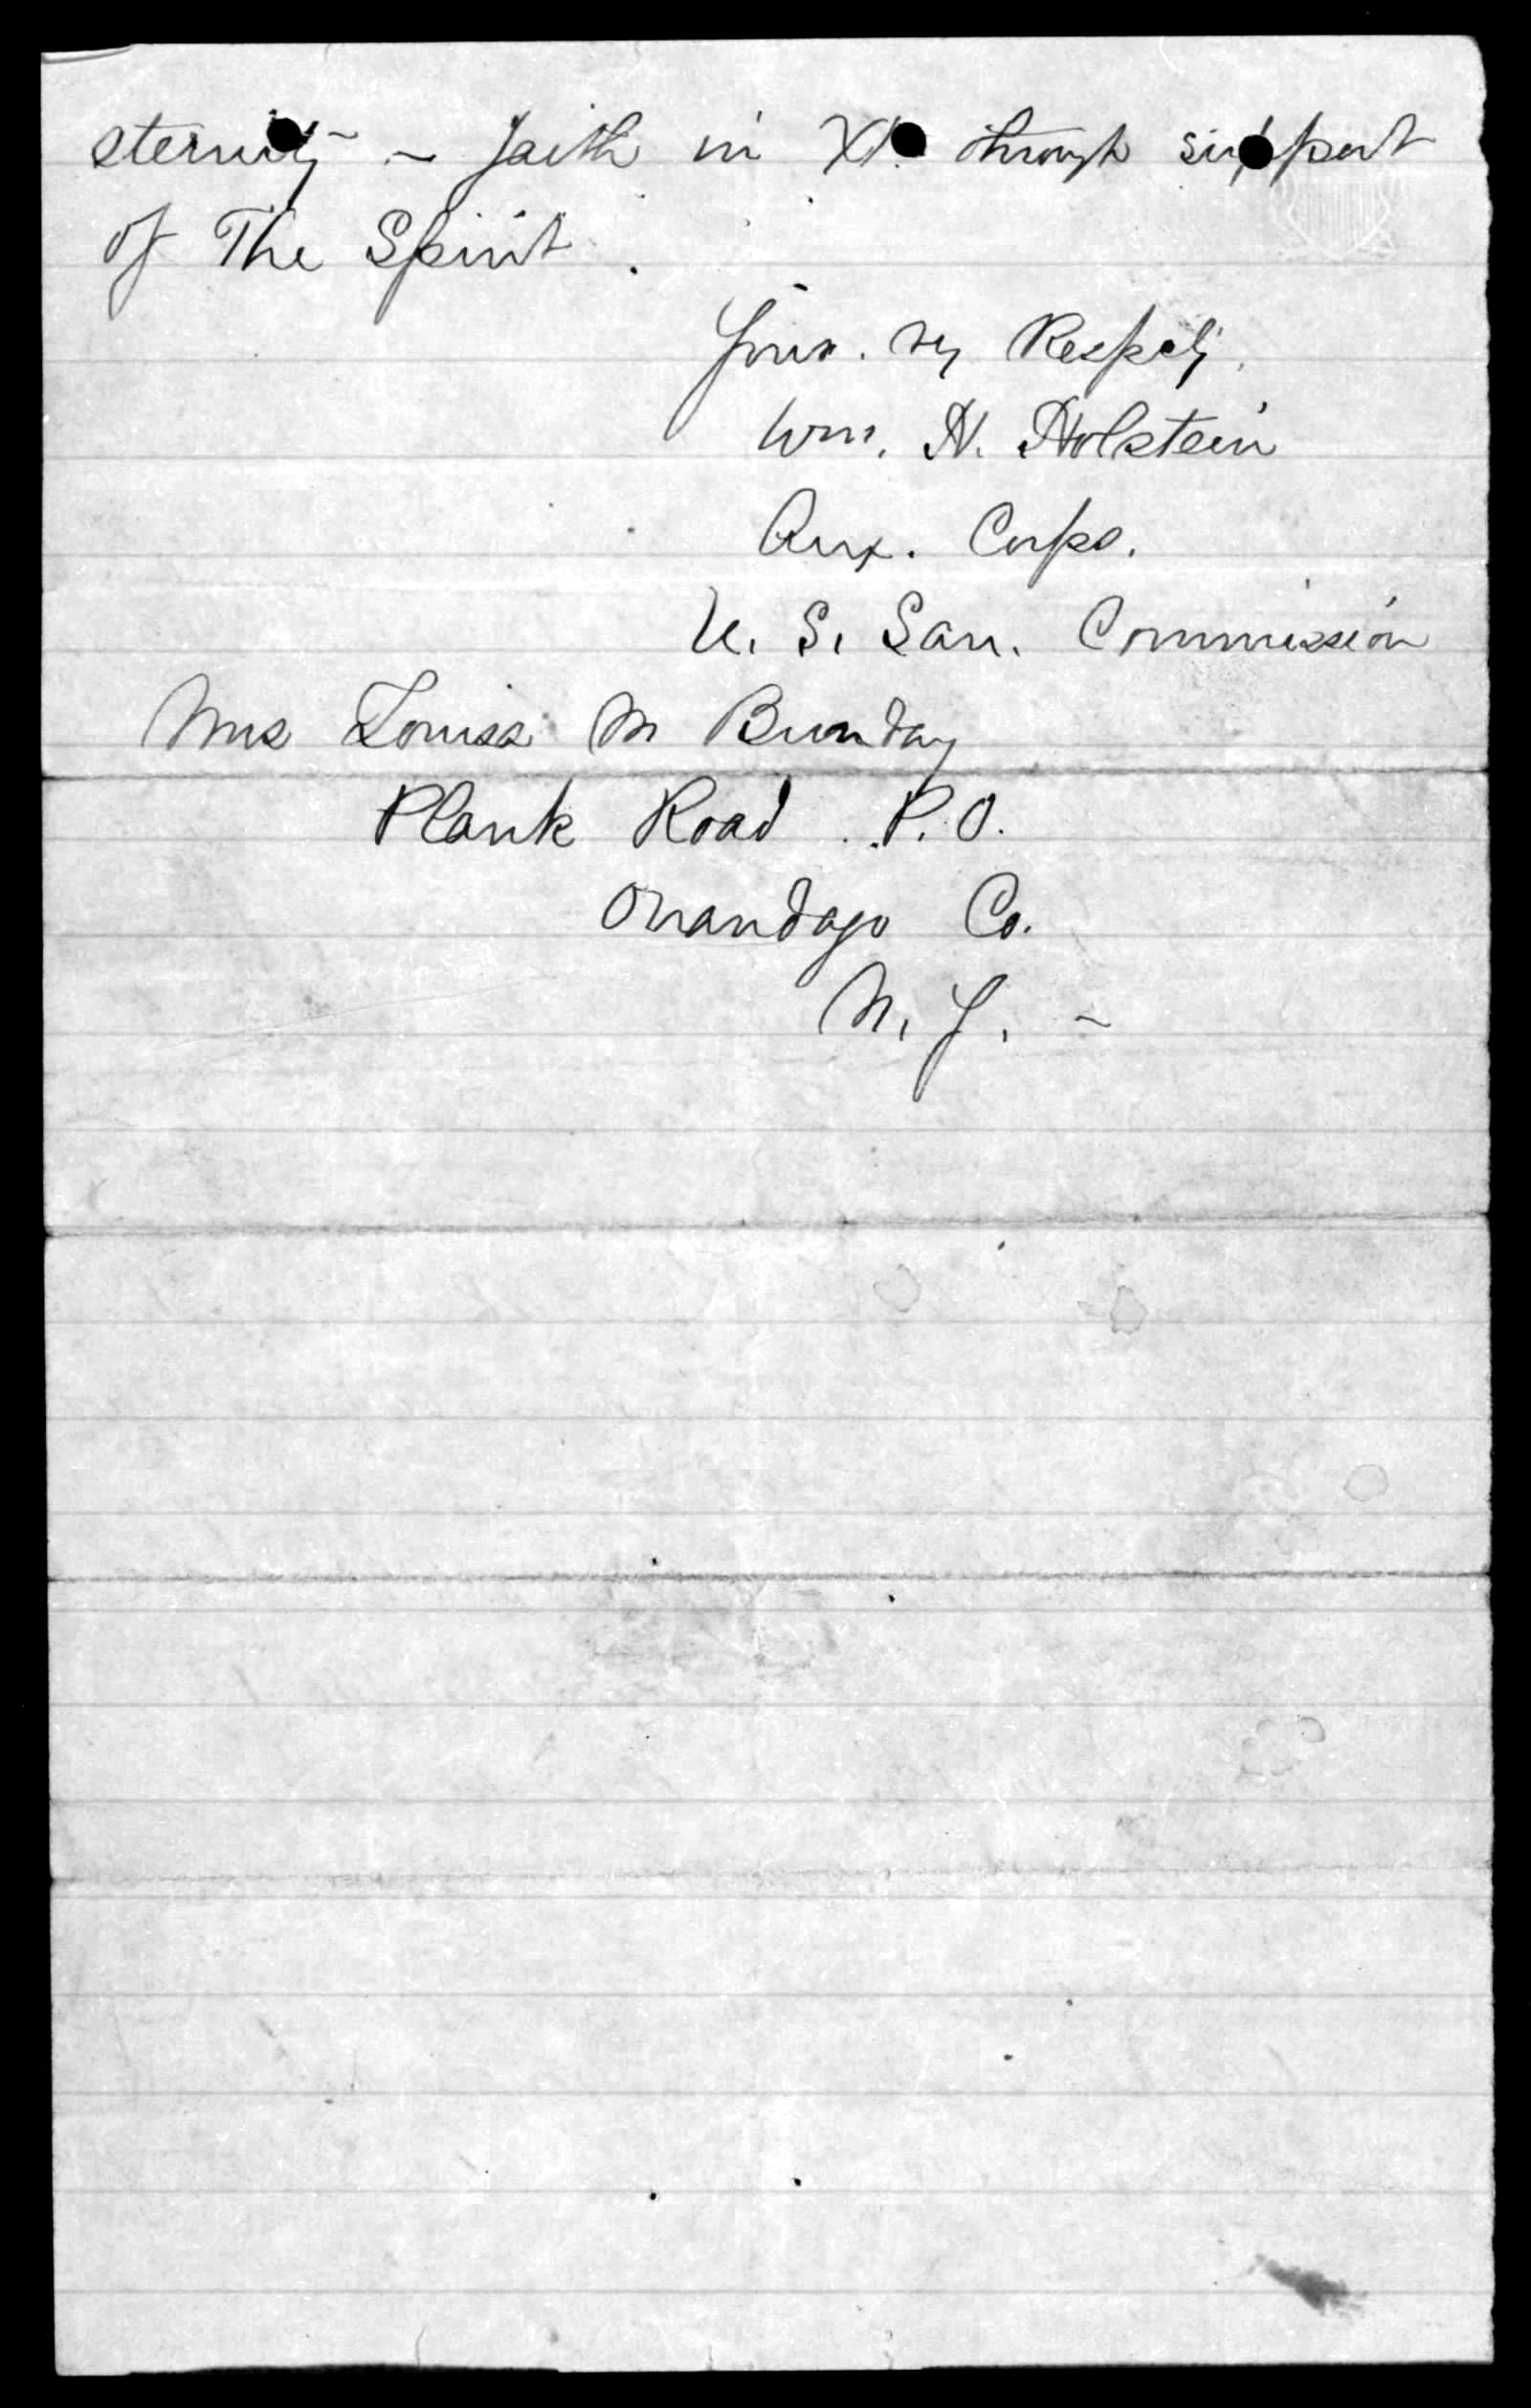 eternity - faith in Xt. through support
of The Spirit.
Yours. Vy Respcty.
Wm. H. Holstein
Aux. Corps.
U. S. San. Commission
Mrs Louisa M Bunday
Plank Road P.O.
Onandago Co.
N. Y. -